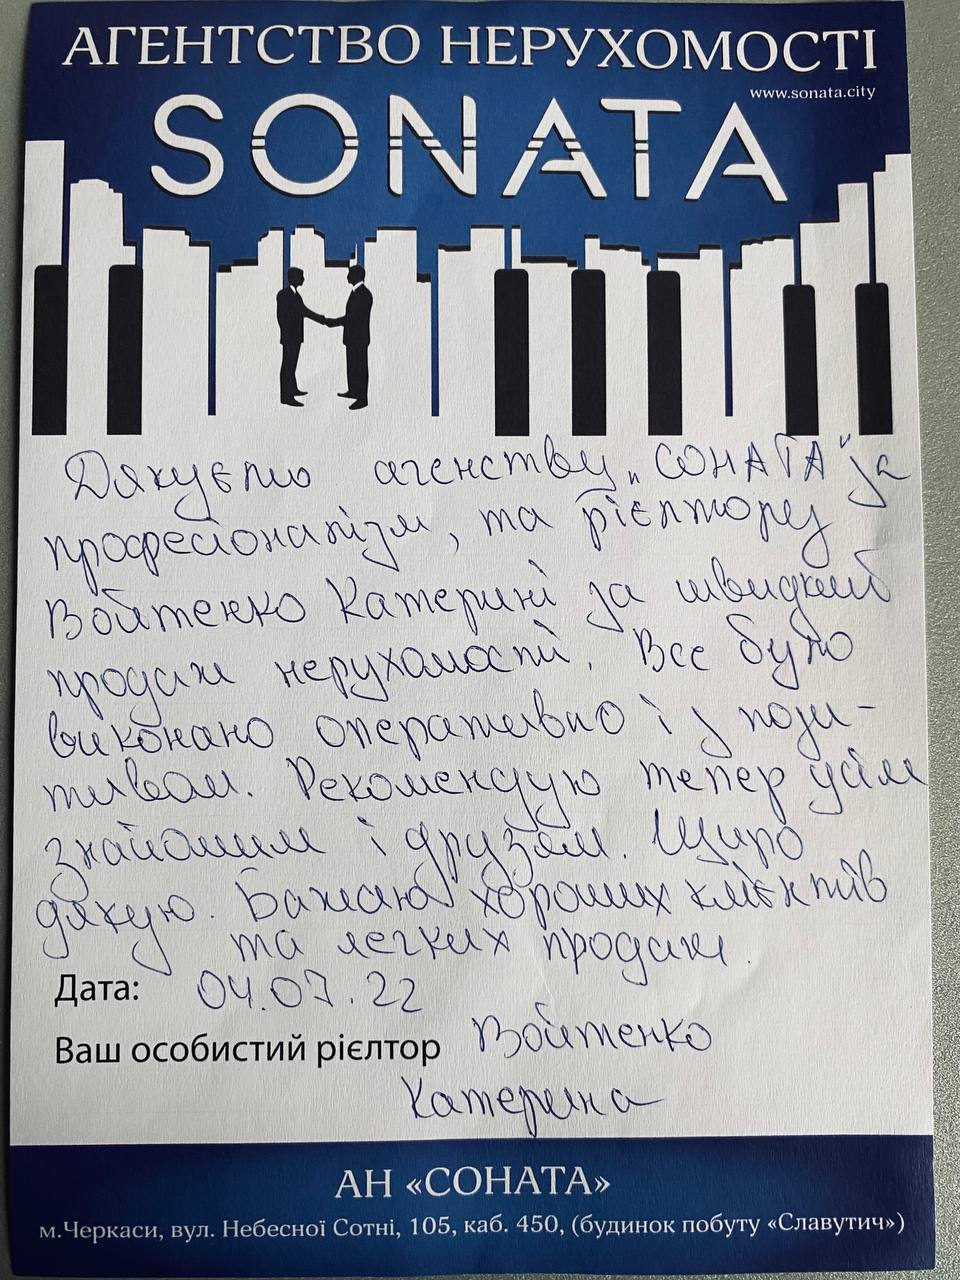 АГЕНТСТВО НЕРУХОМОСТІ
www.sonata.city
SONATA
Дякуємо агенству „СОНАТА" за
професіоналізм, та рієлтору
Войтенко Катерині за швидкий
продаж нерухомості. Все було
виконано оперативно і у пози-
тивом. Рекомендую тепер усім
знайомим і друзям. Щиро
дякую. Бажаю хороших клієнтів
та легких продаж.
Дата: 04.07.22
Ваш особистий рієлтор Войтенко
Катерина
АН «СОНАТА»
м.Черкаси, вул. Небесної Сотні, 105, каб. 450, (будинок побуту «Славутич»)